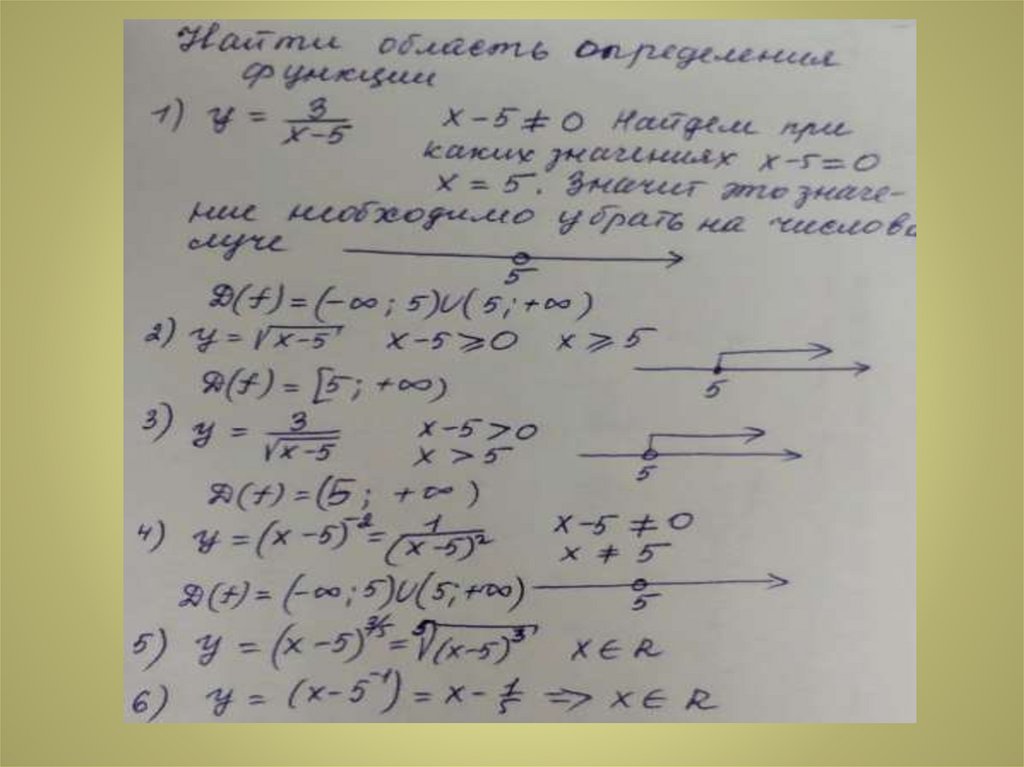 Найти область определения
функции
1) y = 3/(x-5) x-5≠0 Найдем при
каких значениях x-5=0
x = 5. Значит это значе-
ние необходимо убрать на числово
луче
5
D(f)=(-∞; 5)∪(5; +∞)
2) y = √(x-5) x-5⩾0 x⩾5
5
D(f) = [5; +∞)
3) y = 3/√(x-5) x-5>0
x>5
5
D(f)=(5; +∞)
4) y = (x-5)⁻² = 1/(x-5)² x-5≠0
x≠5
D(f)=(-∞; 5)∪(5; +∞)
5
5) y = (x-5)^(3/5) = ⁵√(x-5)³ x∈R
6) y = (x-5⁻¹) = x - 1/5 => x∈R